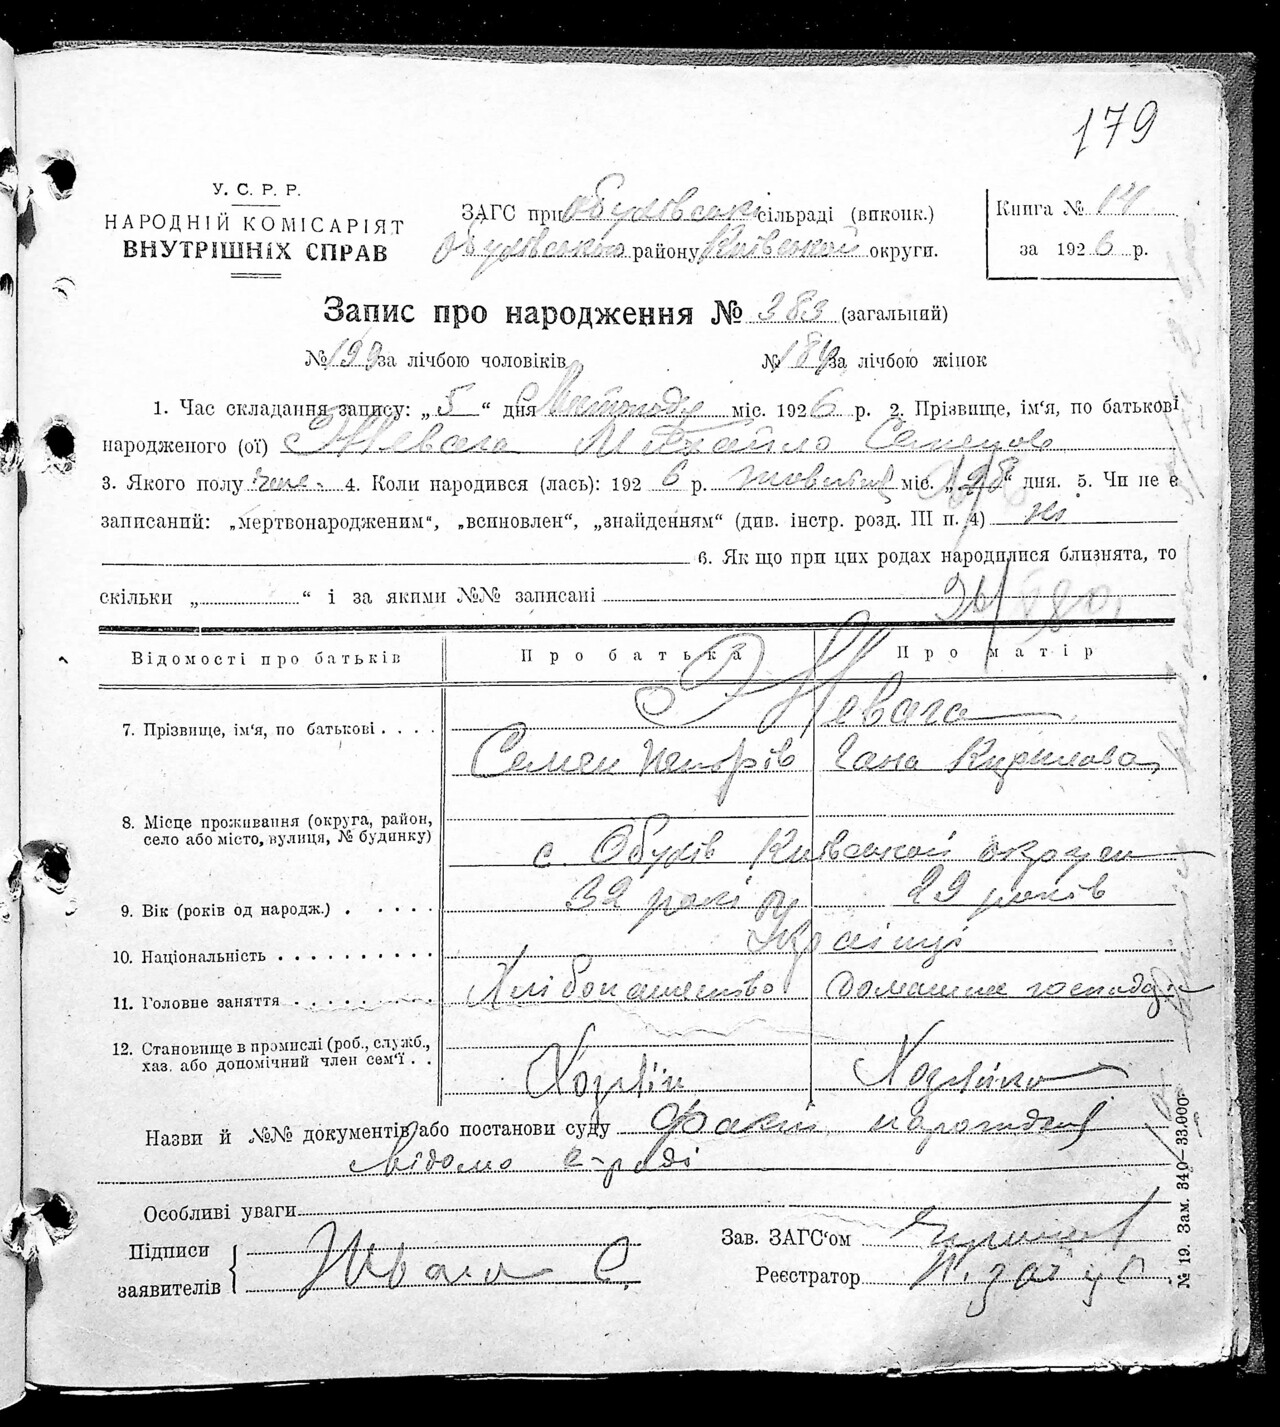 179
У. С. Р. Р.
НАРОДНІЙ КОМІСАРІЯТ
ВНУТРІШНІХ СПРАВ
ЗАГС при Обухівські сільраді (виконк.)
Обухівського району Київськой округи.
Книга № 14
за 1926 р.
Запис про народження № 383 (загальний)
№ 199 за лічбою чоловіків № 184 за лічбою жінок
1. Час складання запису: „ 5 “ дня Листопаду міс. 1926 р. 2. Прізвище, ім'я, по батькові
народженого (ої) Жевага Михайло Семенов
3. Якого полу чол. 4. Коли народився (лась): 1926 р. жовтня міс. „28“ дня. 5. Чи не є
записаний: „мертвонародженим“, „всиновлен“, „знайденням“ (див. інстр. розд. III п. 4) ні
6. Як що при цих родах народилися близнята, то
скільки „ “ і за якими №№ записані
Відомості про батьків Про батька Про матір
Жевага
7. Прізвище, ім'я, по батькові . . . .
Семен Гана Кирилова
8. Місце проживання (округа, район,
село або місто, вулиця, № будинку)
с. Обухів Київськой округи
9. Вік (років од народж.) . . . . . 32 рокі 29 років
10. Національність . . . . . . . . . . Українці
11. Головне заняття . . . . . . . Хлібопашество домашнє господар
12. Становище в промислі (роб., служб.,
хаз. або допомічний член сем'ї . .
Хозяїн Хозяйка
Назви й №№ документів або постанови суду Факт народження
відомо с-раді
Особливі уваги
Підписи
заявителів
Жвага С.
Зав. ЗАГС'ом
Реєстратор
№ 19. Зам. 340—33.000.